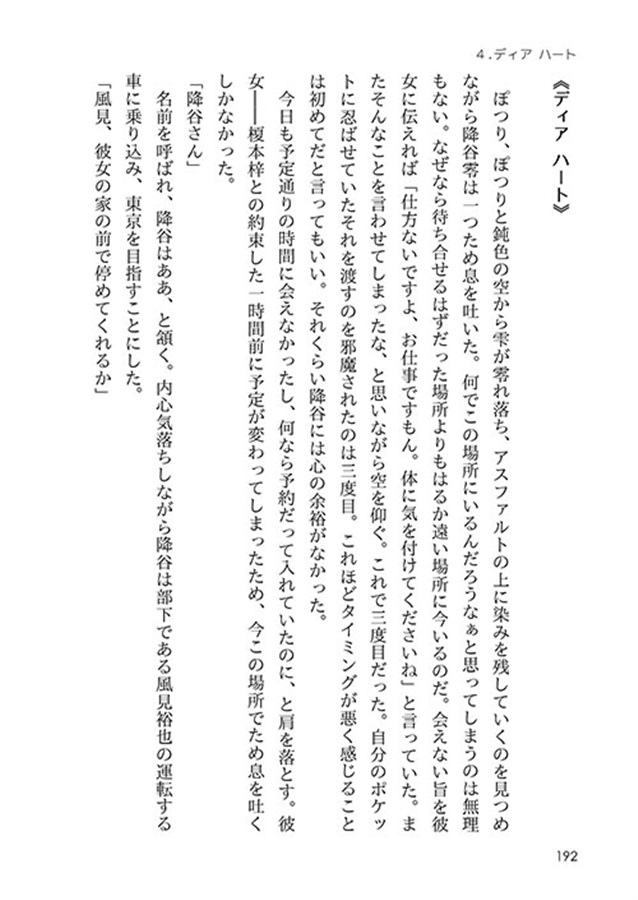 4.ディア ハート
《ディア ハート》
ぽつり、ぽつりと鈍色の空から雫が零れ落ち、アスファルトの上に染みを残していくのを見つめ
ながら降谷零は一つため息を吐いた。何でこの場所にいるんだろうなぁと思ってしまうのは無理
もない。なぜなら待ち合せるはずだった場所よりもはるか遠い場所に今いるのだ。会えない旨を彼
女に伝えれば「仕方ないですよ、お仕事ですもん。体に気を付けてくださいね」と言っていた。ま
たそんなことを言わせてしまったな、と思いながら空を仰ぐ。これで三度目だった。自分のポケッ
トに忍ばせていたそれを渡すのを邪魔されたのは三度目。これほどタイミングが悪く感じること
は初めてだと言ってもいい。それくらい降谷には心の余裕がなかった。
今日も予定通りの時間に会えなかったし、何なら予約だって入れていたのに、と肩を落とす。彼
女――榎本梓との約束した一時間前に予定が変わってしまったため、今この場所でため息を吐く
しかなかった。
「降谷さん」
名前を呼ばれ、降谷はああ、と頷く。内心気落ちしながら降谷は部下である風見裕也の運転する
車に乗り込み、東京を目指すことにした。
「風見、彼女の家の前で停めてくれるか」
192